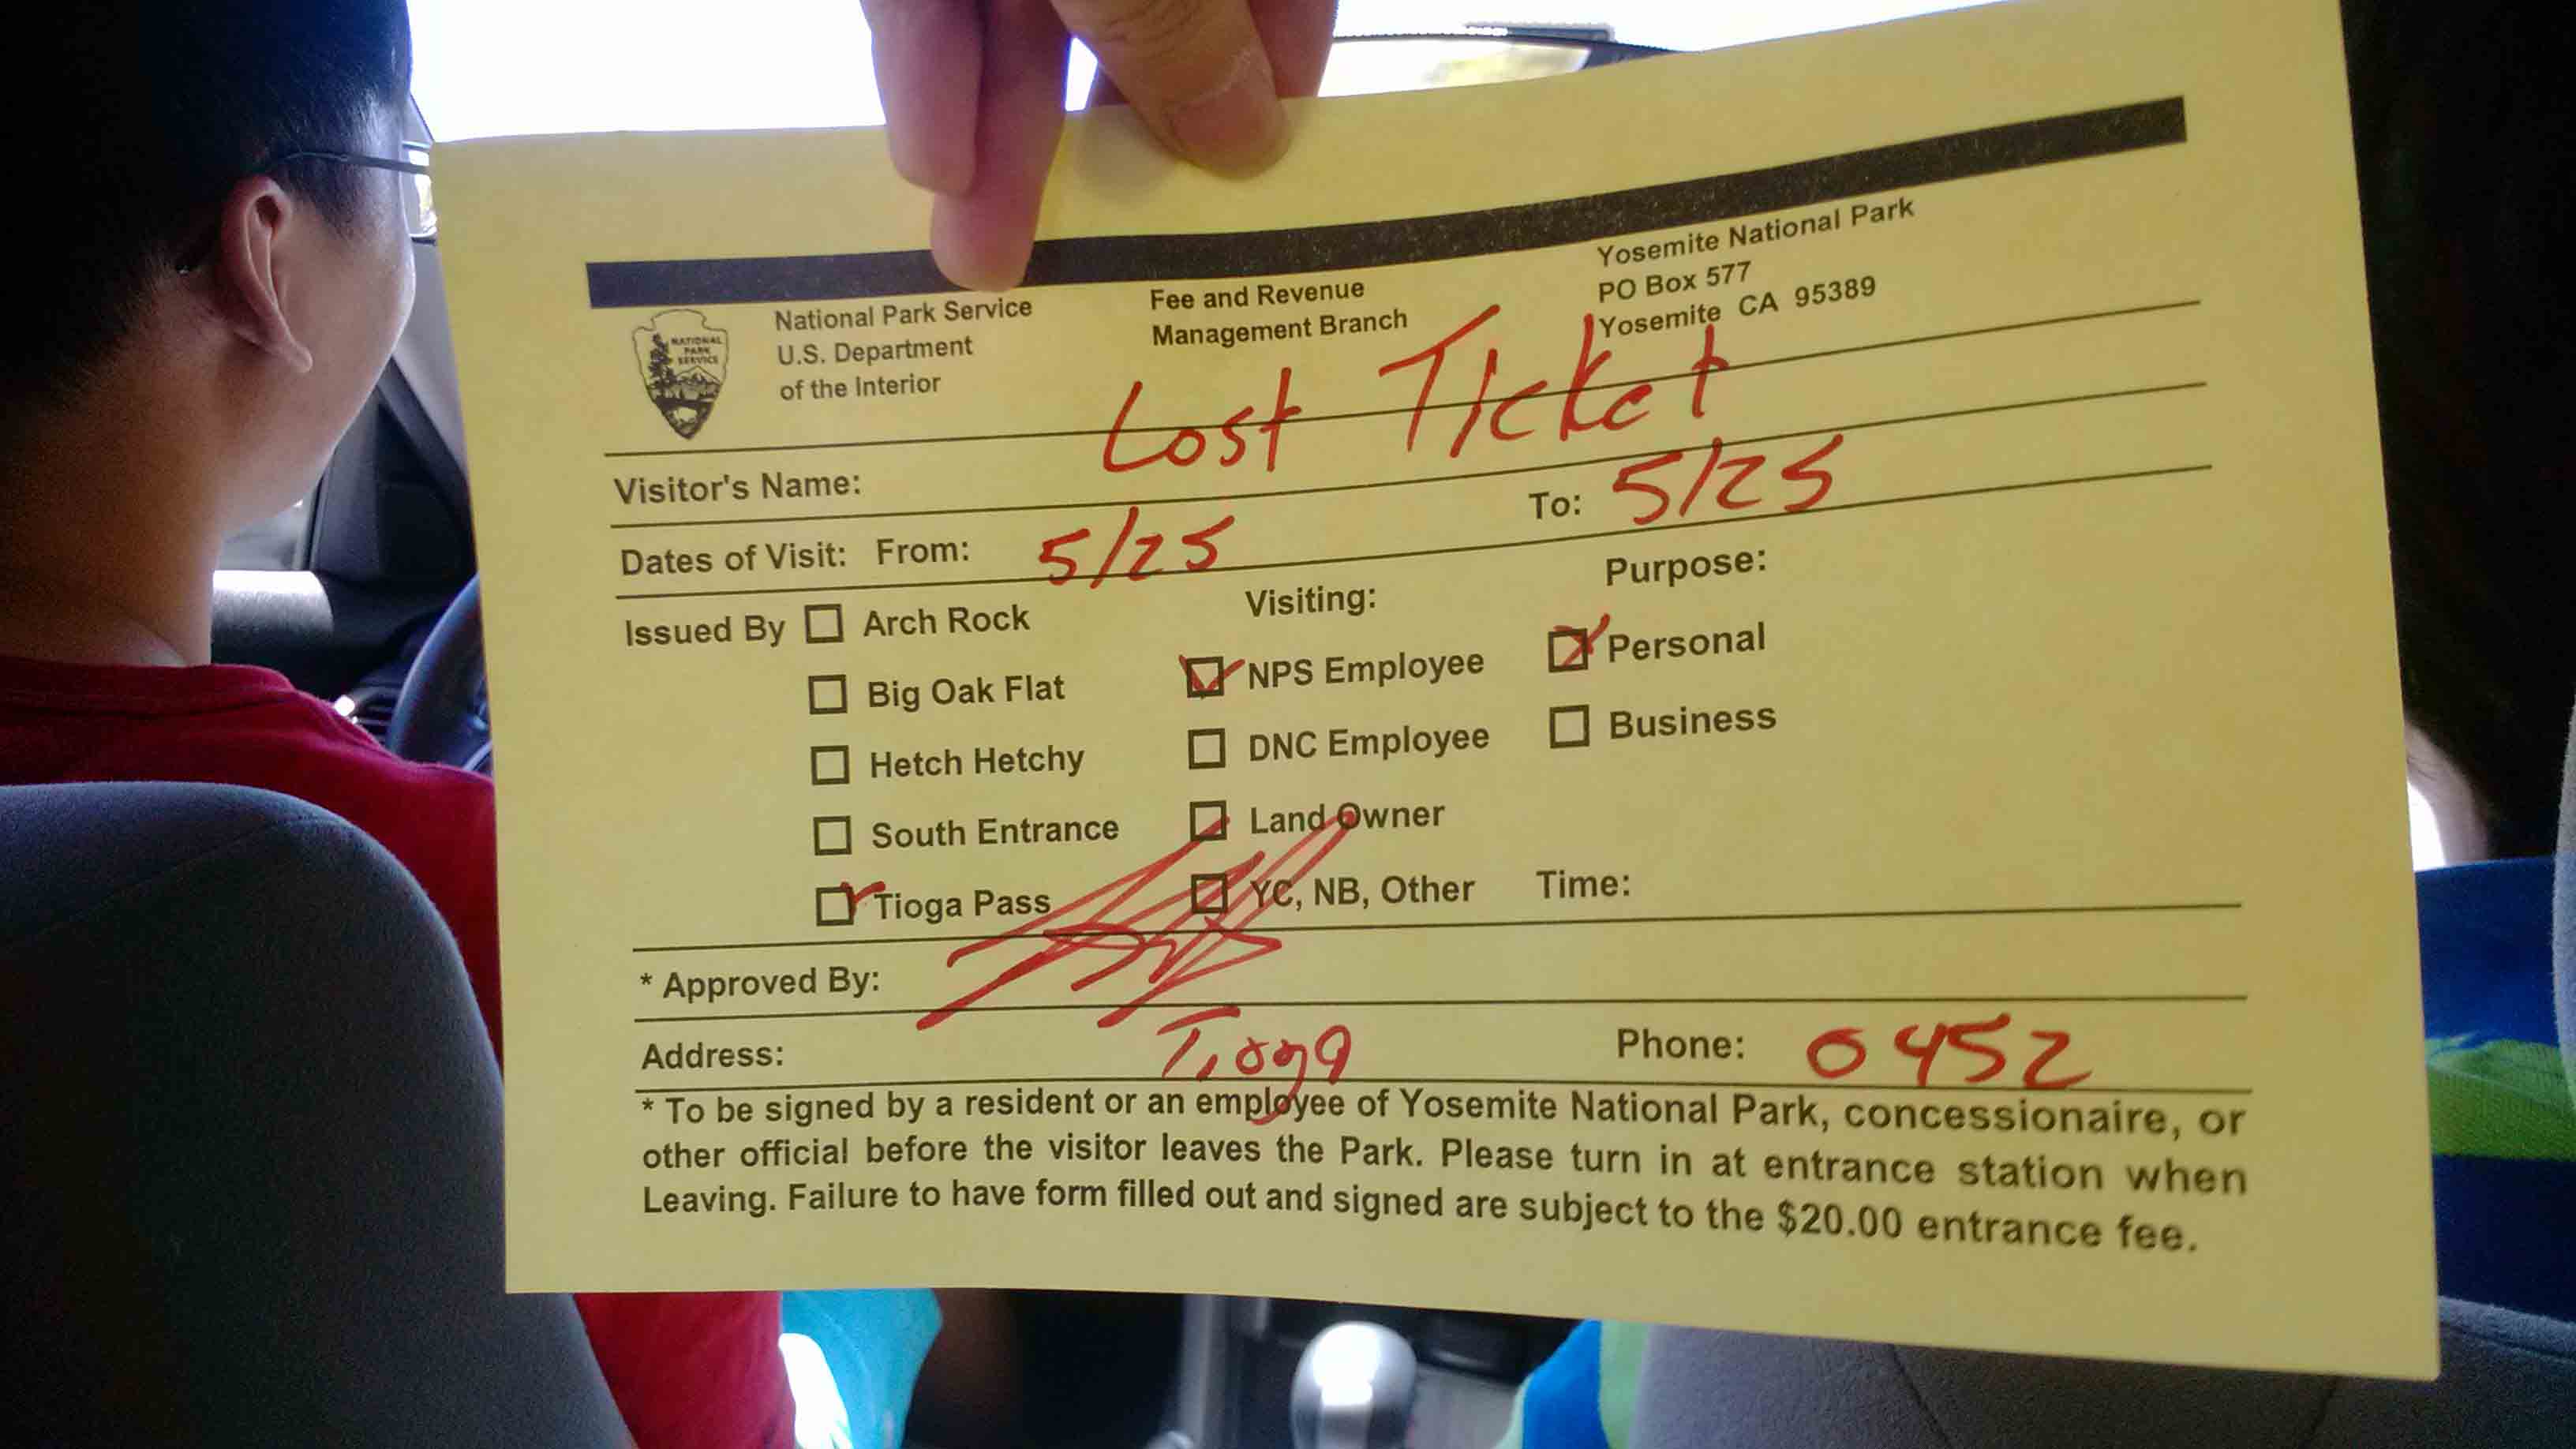 National Park Service
U.S. Department
of the Interior
Fee and Revenue
Management Branch
Yosemite National Park
PO Box 577
Yosemite CA 95389
NATIONAL
PARK
SERVICE
Lost Ticket
Visitor's Name:
Dates of Visit: From: 5/25 To: 5/25
Issued By Arch Rock
Big Oak Flat
Hetch Hetchy
South Entrance
Tioga Pass
Visiting:
NPS Employee
DNC Employee
Land Owner
YC, NB, Other
Purpose:
Personal
Business
Time:
* Approved By:
Address: Tioga Phone: 0452
* To be signed by a resident or an employee of Yosemite National Park, concessionaire, or
other official before the visitor leaves the Park. Please turn in at entrance station when
Leaving. Failure to have form filled out and signed are subject to the $20.00 entrance fee.